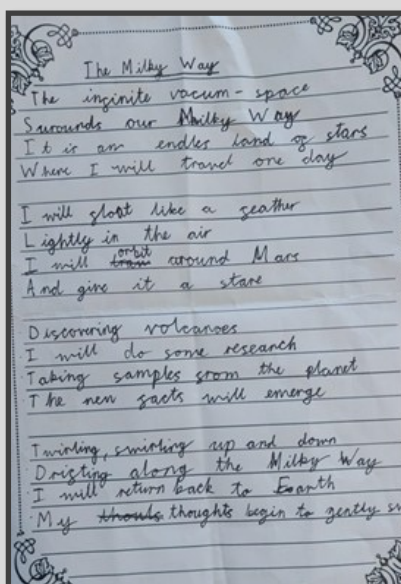 The Milky Way
The infinite vacum - space
Surounds our Milky Way
It is an endles land of stars
Where I will travel one day
I will float like a feather
Lightly in the air
I will orbit around Mars
And give it a stare
Discovering volcanoes
I will do some research
Taking samples from the planet
The new facts will emerge
Twirling, swirling up and down
Drifting along the Milky Way
I will return back to Earth
My thoughts begin to gently